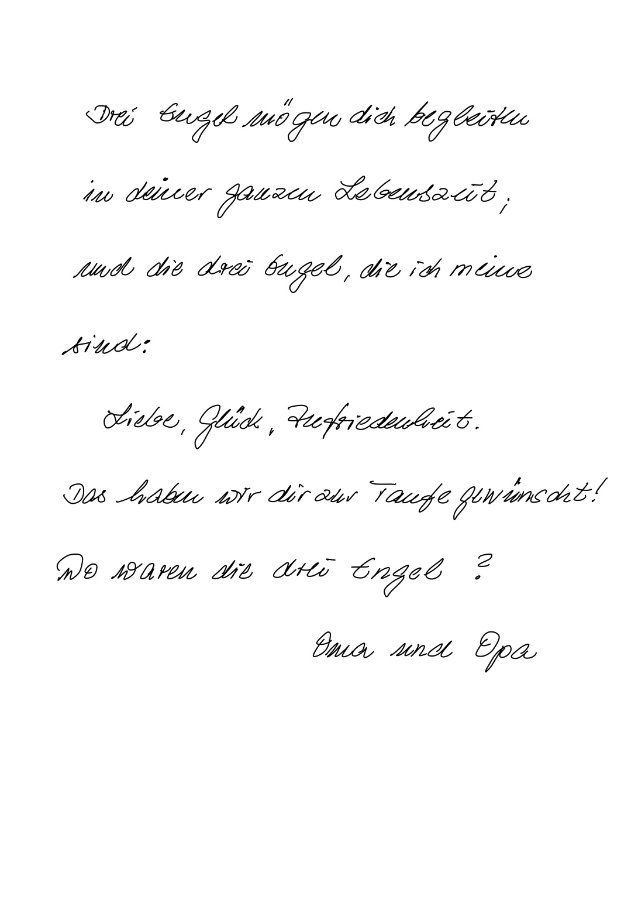 Drei Engel mögen dich begleiten
in deiner ganzen Lebenszeit,
und die drei Engel, die ich meine
sind:
Liebe, Glück, Zufriedenheit.
Das haben wir dir zur Taufe gewünscht!
Wo waren die drei Engel ?
Oma und Opa